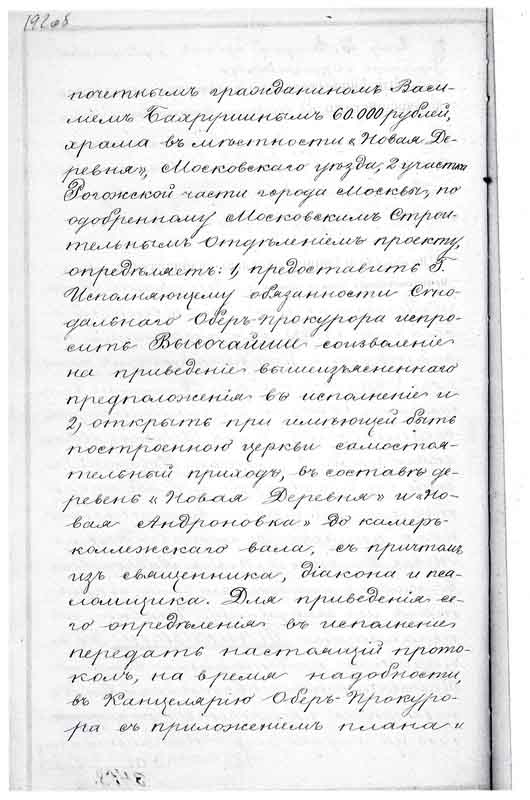 почетнымъ гражданиномъ Васи-
ліемъ Бахрушинымъ 60.000 рублей,
храма въ мѣстности «Новая Де-
ревня», Московскаго уѣзда, 2 участка
Рогожской части города Москвы, по
одобренному Московскимъ Строи-
тельнымъ Отдѣленіемъ проекту,
опредѣляетъ: 1, предоставить Г.
Исполняющему обязанности Сѵно-
дальнаго Оберъ-Прокурора испро-
сить Высочайшее соизволеніе
на приведеніе вышеизъясненнаго
предположенія въ исполненіе и
2, открыть при имѣющей быть
построенною церкви самостоя-
тельный приходъ, въ составѣ де-
ревень «Новая Деревня» и «Но-
вая Андроновка» до камеръ-
коллежскаго вала, съ причтомъ
изъ священника, діакона и пса-
ломщика. Для приведенія се-
го опредѣленія въ исполненіе
передать настоящій прото-
колъ, на время надобности,
въ Канцелярію Оберъ-Прокуро-
ра съ приложеніемъ плана и